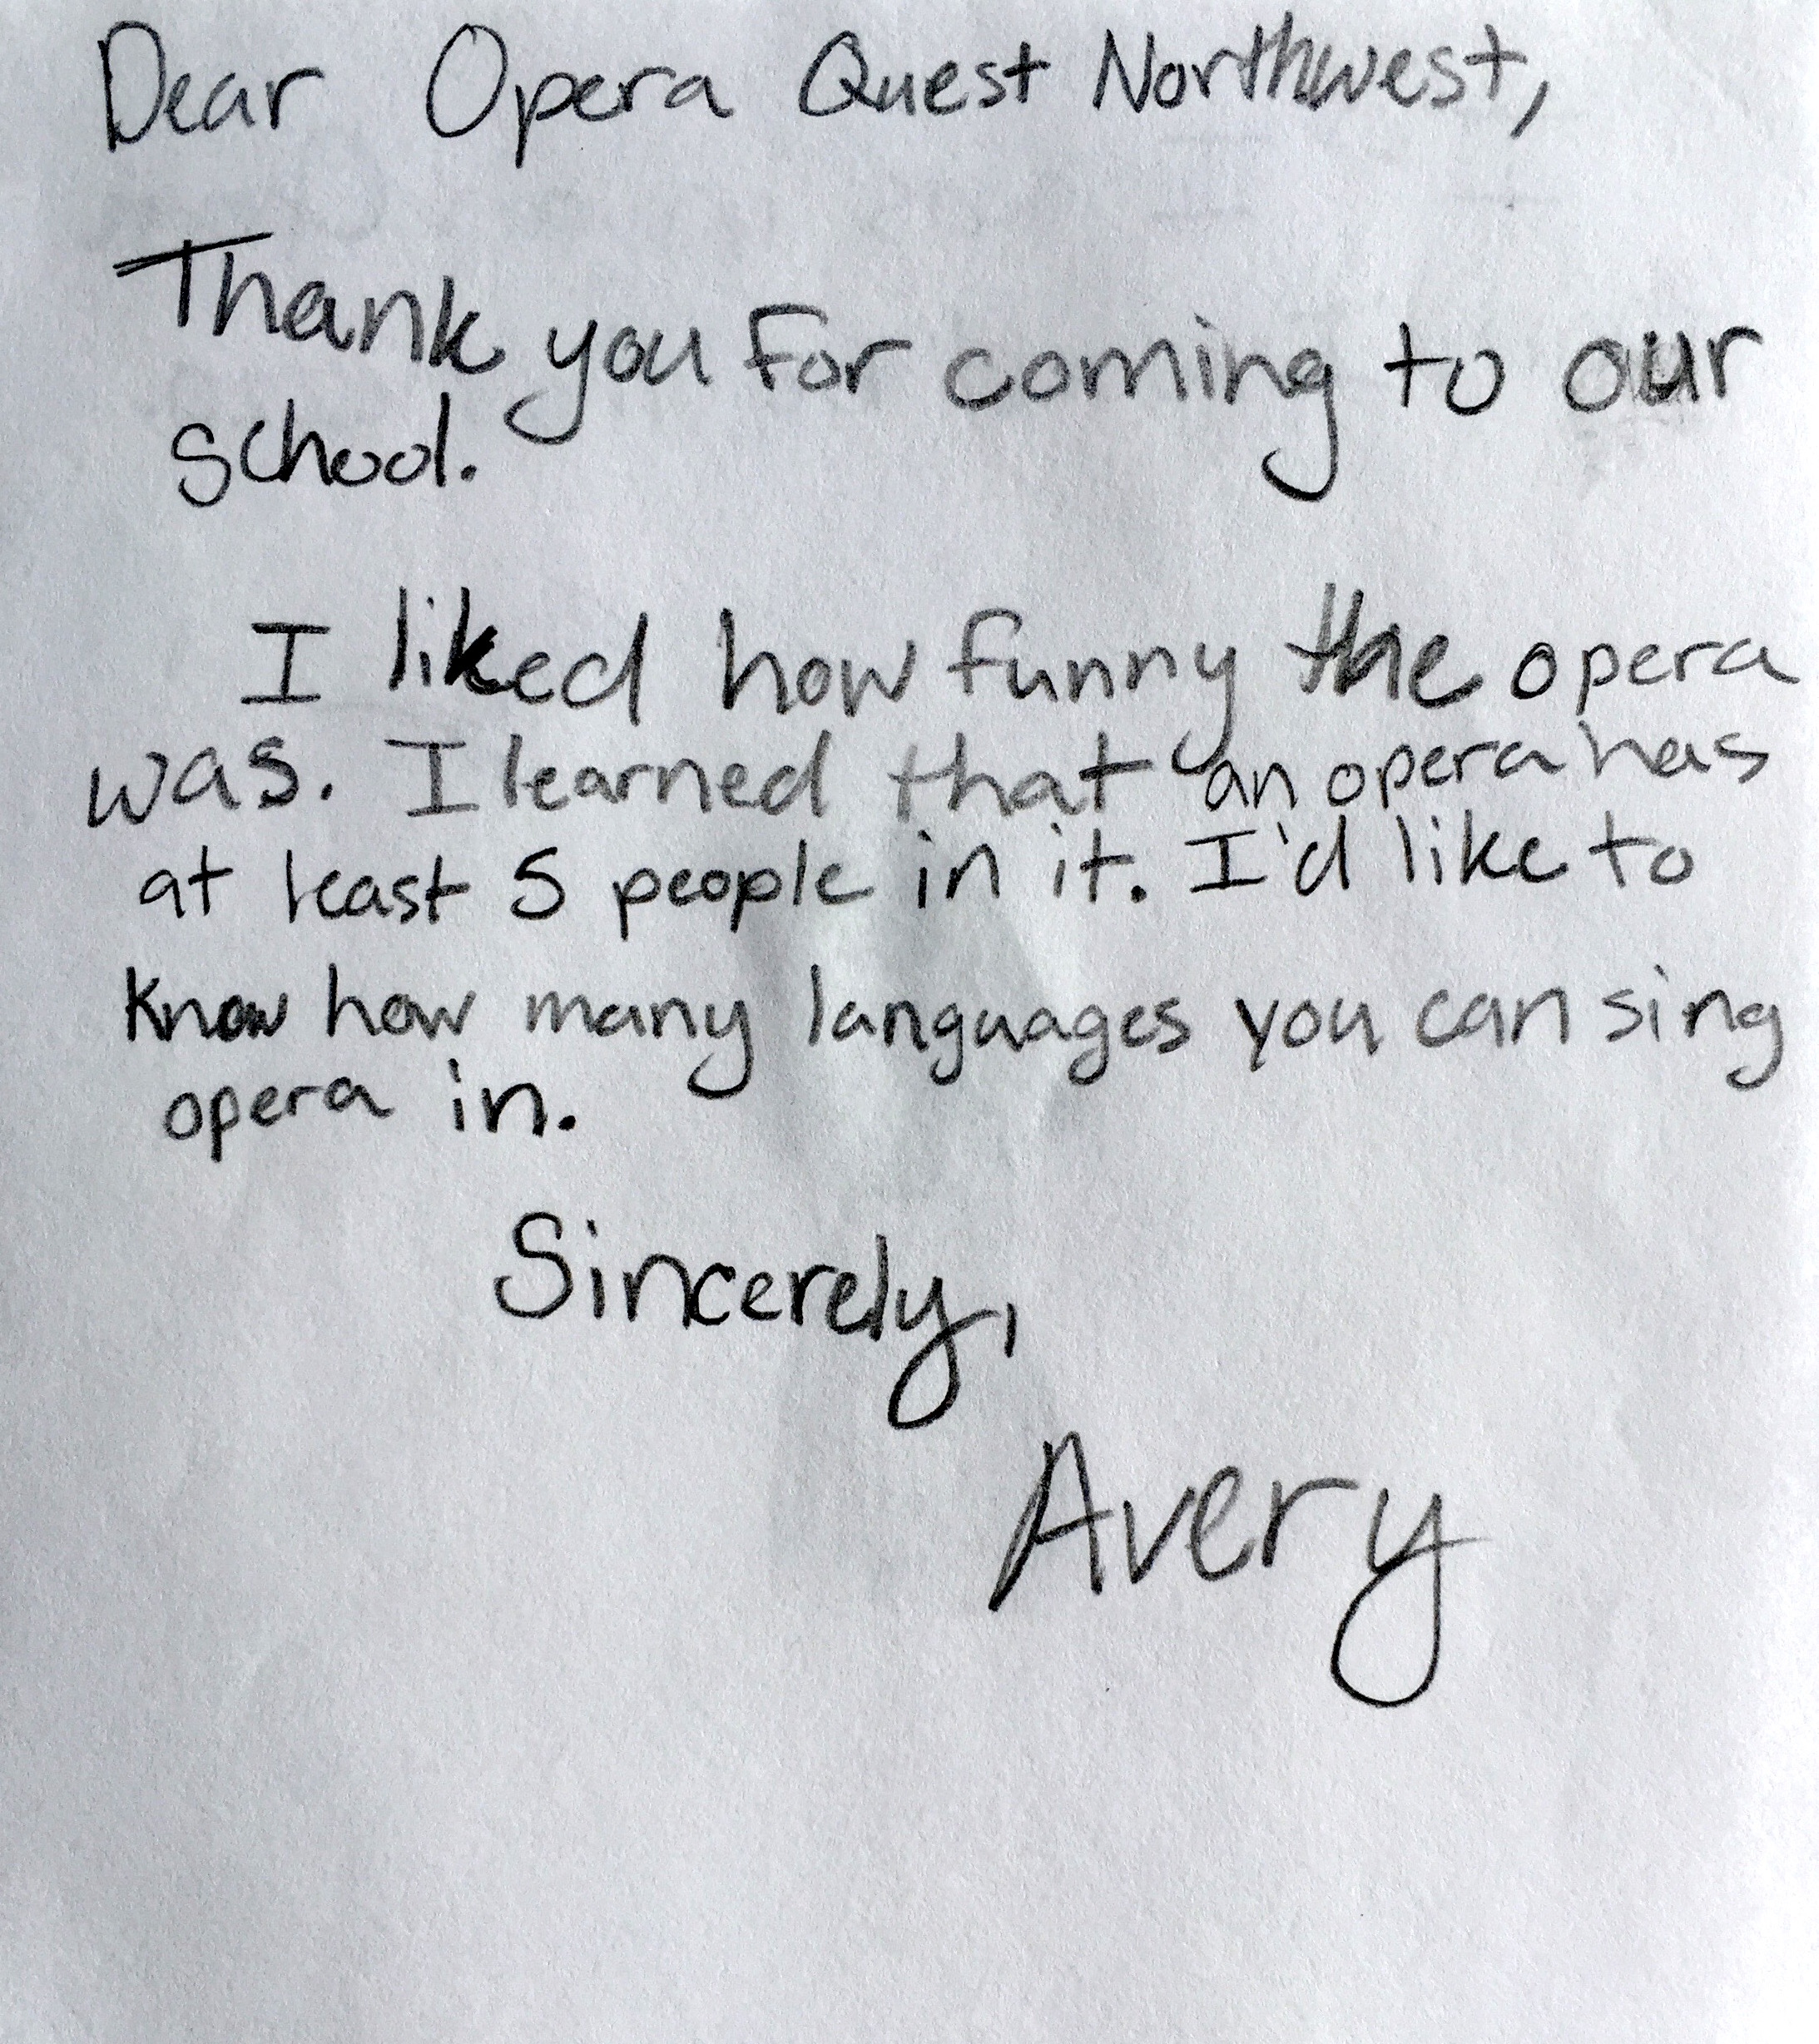 Dear Opera Quest Northwest,
Thank you for coming to our
school.
I liked how funny the opera
was. I learned that an opera has
at least 5 people in it. I'd like to
know how many languages you can sing
opera in.
Sincerely,
Avery